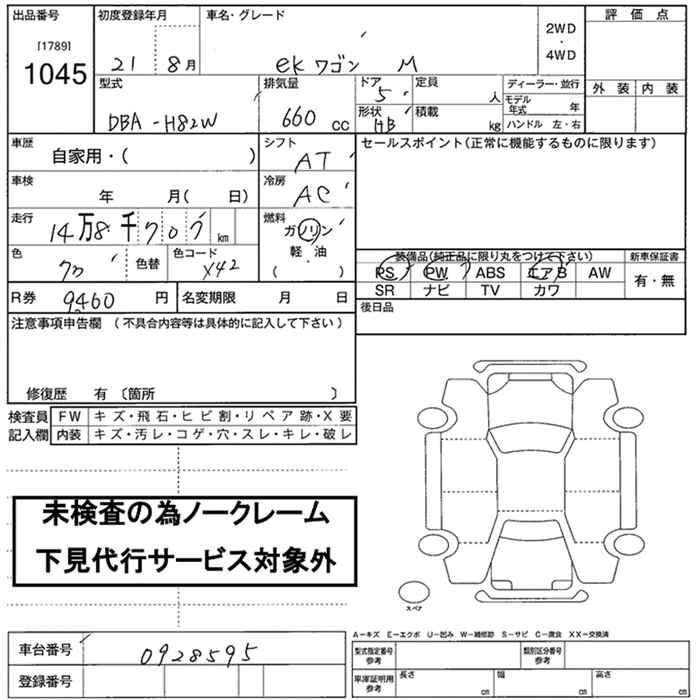 出品番号 初度登録年月 車名・グレード 評価点
[1789]
1045
21 8月 ekワゴン M
2WD
・
4WD
型式 排気量 ドア 定員 ディーラー・並行 外装 内装
DBA-H82W 660 cc 5 人
形状 積載 モデル年式 年
HB kg ハンドル 左・右
車歴 シフト セールスポイント(正常に機能するものに限ります)
自家用・( ) AT
車検 冷房
年 月( 日) AC
走行 燃料
14万8千707 km ガソリン
軽・油
( ・ )
色 色替 色コード
X42
装備品(純正品に限り丸をつけて下さい) 新車保証書
PS PW ABS エアB AW 有・無
SR ナビ TV カワ
R券 9460 円 名変期限 月 日
後日品
注意事項申告欄 (不具合内容等は具体的に記入して下さい)
修復歴 有 〔箇所 〕
検査員 FW キズ・飛石・ヒビ割・リペア跡・X要
記入欄 内装 キズ・汚レ・コゲ・穴・スレ・キレ・破レ
未検査の為ノークレーム
下見代行サービス対象外
スペア
A−キズ E−エクボ U−凹み W−補修跡 S−サビ C−腐食 XX−交換済
車台番号 0928595
型式指定番号 参考 類別区分番号 参考
登録番号
車庫証明用 参考 長さ cm 幅 cm 高さ cm